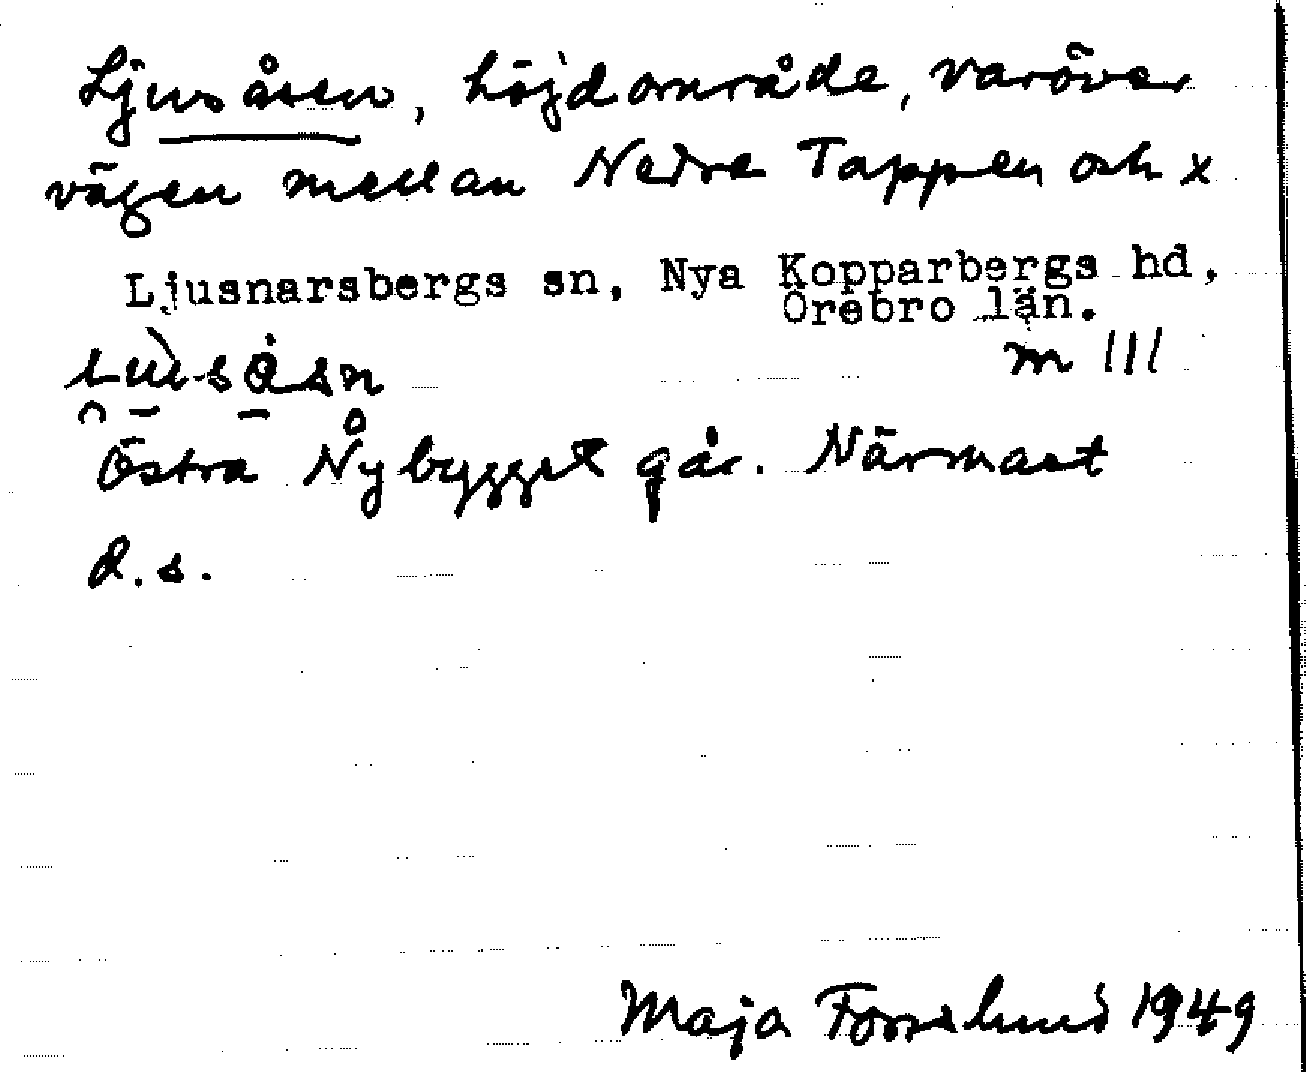 Ljusåsen, höjdområde, varöver
vägen mellan Nedre Tappen och x
Ljusnarsbergs sn, Nya Kopparbergs hd,
Örebro län.
m III
Östra Nybygget går. Närmast
d.s.
Maja Forsslund 1949